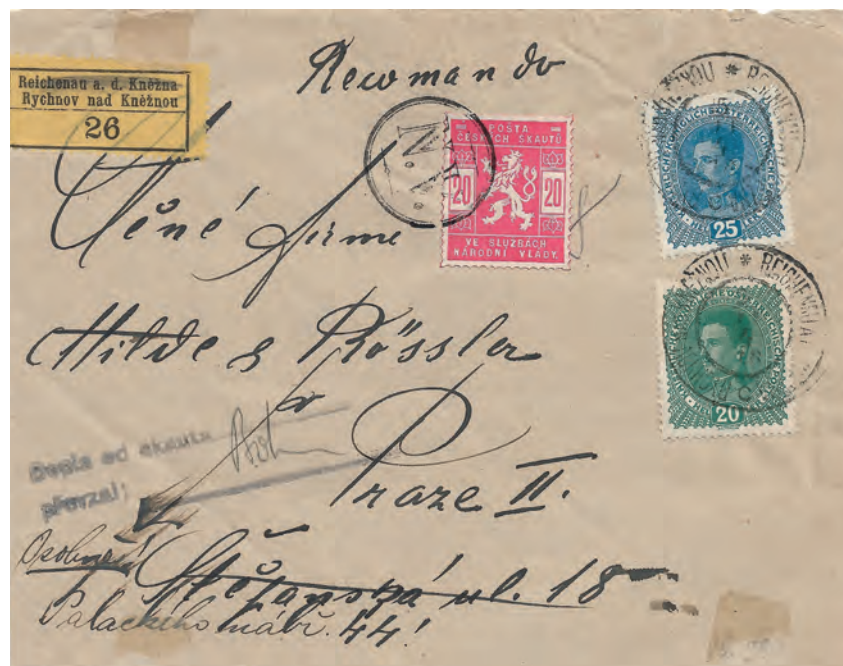 Rekomando
Reichenau a. d. Kněžna
Rychnov nad Kněžnou
26
N.V.
POŠTA
ČESKÝCH SKAUTŮ
20 20
VE SLUŽBÁCH
NÁRODNÍ VLÁDY.
25
20
Ctěné firmě
Milde & Rössler
v
Praze II.
Dopis od skauta
převzal:
Osobně!
Štěpánská ul. 18
Palackého nábř. 44!